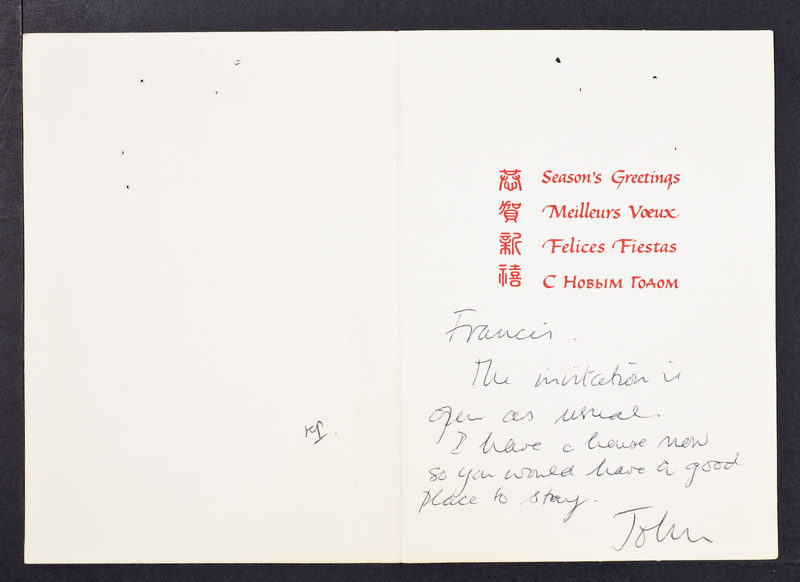 恭賀新禧
Season's Greetings
Meilleurs Vœux
Felices Fiestas
С Новым Годом
Francis.
The invitation is
open as usual.
I have a house now
so you would have a good
place to stay.
John